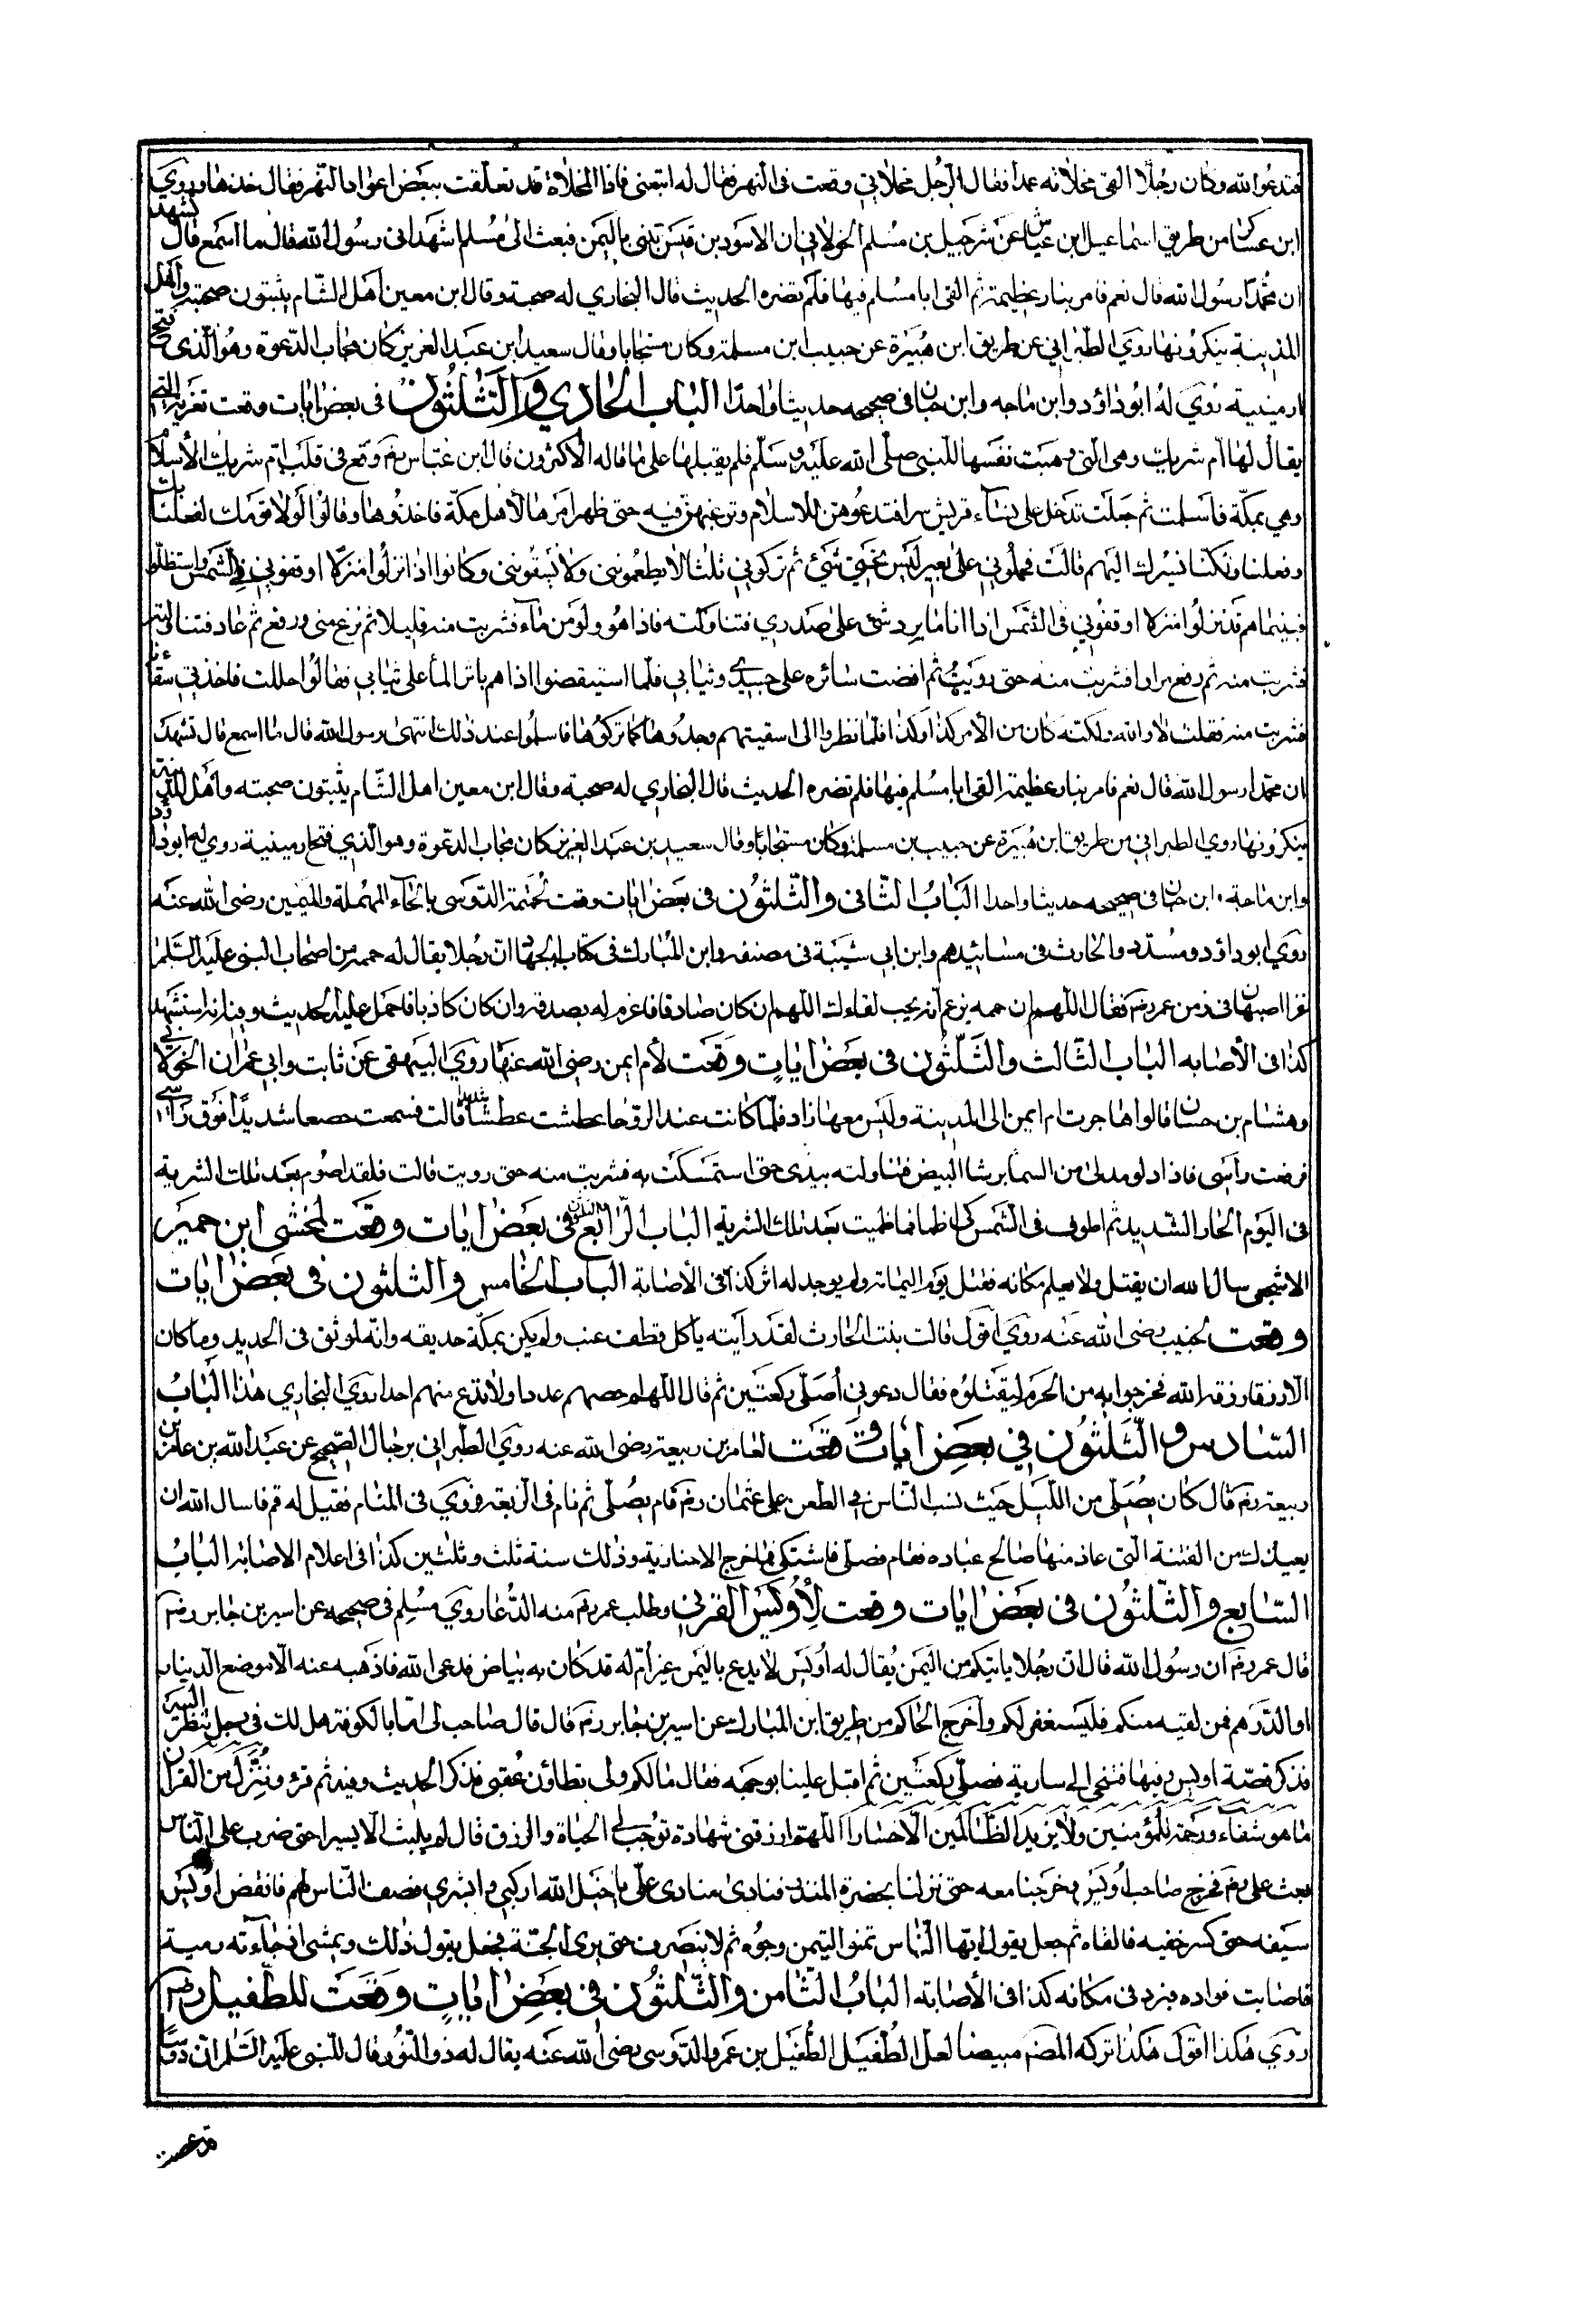 فتدعوا الله وكان رجلا القى مخلاته عمدا فقال الرجل مخلاتي وقعت فى النهر فقال له اتبعنى فاذا المخلاة قد تعلقت ببعض اعواد النهر فقال خذها وروي
ابن عساكر من طريق اسماعيل ابن عياش عن شرحبيل بن مسلم الخولاني ان الاسود بن قيس تنبى باليمن فبعث الى مسلم اشهد انى رسول الله قال ما اسمع قال تشهد
ان محمدا رسول الله قال نعم فامر بنار عظيمة ثم القى ابا مسلم فيها فلم تضره الحديث قال البخاري له صحبة وقال ابن معين اهل الشام يثبتون صحبته واهل
المدينة ينكرونها روي الطبراني عن طريق ابن هبيرة عن حبيب ابن مسلمة وكان مستجابا وقال سعيد ابن عبد العزيز كان مجاب الدعوة وهو الذى فتح
ارمينية روي له ابو داؤد وابن ماجه وابن حبان فى صحيحه حديثا واحدا الباب الحادي والثلثون فى بعض ايات وقعت
يقال لها ام شريك وهى التى وهبت نفسها للنبى صلى الله عليه وسلم فلم يقبلها على ما قاله الاكثرون قال ابن عباس رضم وقع فى قلب ام شريك الاسلام
وهي بمكة فاسلمت ثم جعلت تدخل على نساء قريش سرا فتدعوهن للاسلام وترغبهن فيه حتى ظهر امرها لاهل مكة فاخذوها وقالوا لولا قومك لفعلنا بك
وفعلنا ولكنا نسيرك اليهم قالت فحملوني على بعير ليس تحتى شئ ثم تركوني ثلثا لا يطعمونى ولا يسقونى وكانوا اذا نزلوا منزلا اوقفوني فى الشمس واستظلوا
فبينما هم قد نزلوا منزلا اوقفوني فى الشمس اذا انا بابرد شئ على صدري فتناولته فاذا هو دلو من ماء فشربت منه قليلا ثم نزع منى ورفع ثم عاد فتناولته
فشربت منه ثم رفع مرارا فشربت منه حتى رويت ثم افضت سائره على جسدي وثيابي فلما استيقضوا اذا هم باثر الماء على ثيابي فقالوا احللت فاخذتي سقاءنا
فشربت منه فقلت لا والله ولكنه كان من الامر كذا وكذا فلما نظروا الى اسقيتهم وجدوها كما تركوها فاسلموا عند ذلك انتهى رسول الله قال ما اسمع قال تشهد
ان محمدا رسول الله قال نعم فامر بنار عظيمة القى ابا مسلم فيها فلم تضره الحديث قال البخاري له صحبة وقال ابن معين اهل الشام يثبتون صحبته واهل المدينة
ينكرونها روي الطبراني من طريق ابن هبيرة عن حبيب بن مسلمة وكان مستجابا وقال سعيد بن عبد العزيز كان مجاب الدعوة وهو الذي فتح ارمينية روي له ابو داؤد
وابن ماجة وابن حبان فى صحيحه حديثا واحدا الباب الثانى والثلثون فى بعض ايات وقعت لحممة الدوسى بالحاء المهملة والميمين رضى الله عنه
روي ابو داؤد ومسدد والحارث فى مسانيدهم وابن ابى شيبة فى مصنفه وابن المبارك فى كتاب الجهاد ان رجلا يقال له حممة من اصحاب النبى عليه السلام
غزا اصبهان فى زمن عمر رضم فقال اللهم ان حممه يزعم انه يحب لقاءك اللهم ان كان صادقا فاعزم له بصدقه وان كان كاذبا فاحمل عليه الحديث وفيه انه استشهد
كذا فى الاصابه الباب الثالث والثلثون فى بعض ايات وقعت لام ايمن رضى الله عنها روي البيهقى عن ثابت وابى عمران الخولاني
وهشام بن حسان قالوا هاجرت ام ايمن الى المدينة وليس معها زاد فلما كانت عند الروحا عطشت عطشا شديدا قالت فسمعت شديدا فوق راسي
فرفعت راسى فاذا دلو مدلى من السما برشا ابيض فتناولته بيدى حتى استمسكت به فشربت منه حتى رويت قالت فلقد اصوم بعد تلك الشربة
فى اليوم الحار الشديد ثم اطوف فى الشمس كى اظما فما ظميت بعد تلك الشربة الباب الرابع والثلثون فى بعض ايات وقعت لمخشى ابن حمير
الاشجعى سال الله ان يقتل ولا يعلم مكانه فقتل يوم اليمامة ولم يوجد له اثر كذا فى الاصابة الباب الخامس والثلثون فى بعض ايات
وقعت لخبيب رضى الله عنه روي اقول قالت بنت الحارث لقد رايته ياكل قطف عنب ولم يكن بمكة حديقه وانه لموثق فى الحديد وما كان
الا رزقا رزقه الله فخرجوا به من الحرم ليقتلوه فقال دعوني اصلى ركعتين ثم قال اللهم احصهم عددا ولا تدع منهم احدا روي البخاري هذا الباب
السادس والثلثون في بعض ايات وقعت لعامر بن ربيعة رضى الله عنه روي الطبرانى برجال الصحيح عن عبد الله بن عامر بن
ربيعة رضم قال كان يصلى من الليل حيث نشب الناس في الطعن على عثمان رضم قام يصلى ثم نام فى الربعة فروي فى المنام فقيل له قم فاسال الله ان
يعيذك من الفتنة التى عاذ منها صالح عباده فقام فصلى فاشتكى فما خرج الا جنازة وذلك سنة ثلث وثلثين كذا فى اعلام الاصابه الباب
السابع والثلثون فى بعض ايات وقعت لاويس القرني وطلب عمر رضم منه الدعا روي مسلم فى صحيحه عن اسير بن جابر رضم
قال عمر رضم ان رسول الله قال ان رجلا ياتيكم من اليمن يقال له اويس لا يدع باليمن غير ام له قد كان به بياض فدعى الله فاذهبه عنه الا موضع الدينار
او الدرهم فمن لقيه منكم فليستغفر لكم واخرج الحاكم من طريق ابن المبارك عن اسير بن جابر رضم قال قال صاحب لى انا بالكوفة هل لك فى رجل تنظر اليه
فذكر قصة اويس وفيها فتنحى الى سارية فصلى ركعتين ثم اقبل علينا بوجهه فقال مالكم ولى تطاؤن عقبى فذكر الحديث وفيه ثم قرء وننزل من القران
ما هو شفاء ورحمة للمؤمنين ولا يزيد الظالمين الا خسارا اللهم ارزقنى شهادة توجب لي الحياة والرزق قال لم يلبث الا يسيرا حتى ضرب على الناس
بعث على رضم فخرج صاحب اويس وخرجنا معه حتى نزلنا بحضرة فنادى منادى على يا خيل الله اركبي وابشري فصف الناس لهم فانفض اويس
سيفه حتى كسر جفنه فالقاه ثم جعل يقول ايها الناس تمنوا وجوه ثم لا ينصرف حتى يرى الجنة فجعل يقول ذلك ويمشى اذ جاءته رمية
فاصابت فواده فبرد فى مكانه كذا فى الاصابة الباب الثامن والثلثون في بعض ايات وقعت للطفيل رضم
روي هكذا اقول هكذا تركه المصنم مبيضا لعل الطفيل الطفيل بن عمرو الدوسى رضى الله عنه يقال له ذو النور قال للنبى عليه السلام ان دوسا
قد عصت